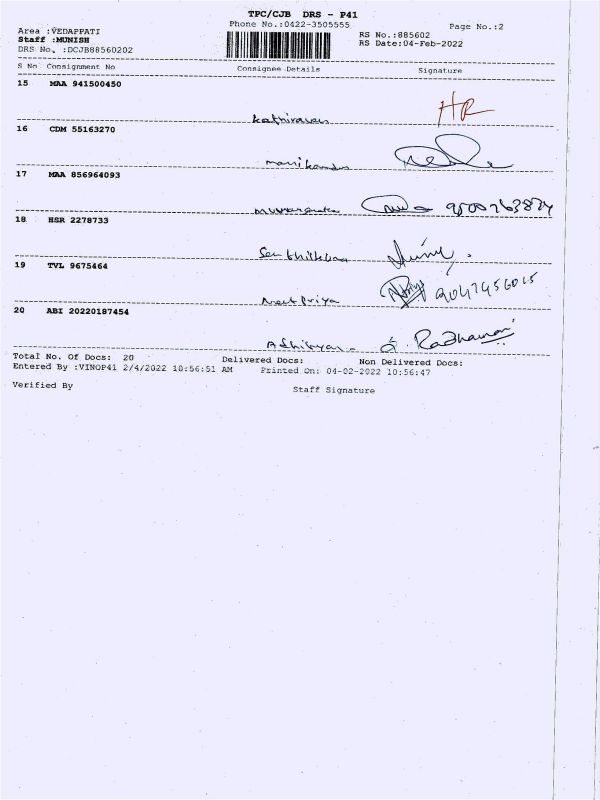 TPC/CJB DRS - P41
Phone No.:0422-3505555
Page No.:2
Area :VEDAPPATI
RS No.:885602
Staff :MUNISH
RS Date:04-Feb-2022
DRS No. :DCJB88560202
S No Consignment No Consignee Details Signature
15 MAA 941500450
Kathiravan HR
16 CDM 55163270
Manikandan
17 MAA 856964093
18 HSR 2278733
19 TVL 9675464
20 ABI 20220187454
Radhamani
Total No. Of Docs: 20 Delivered Docs: Non Delivered Docs:
Entered By :VINOP41 2/4/2022 10:56:51 AM Printed On: 04-02-2022 10:56:47
Verified By Staff Signature